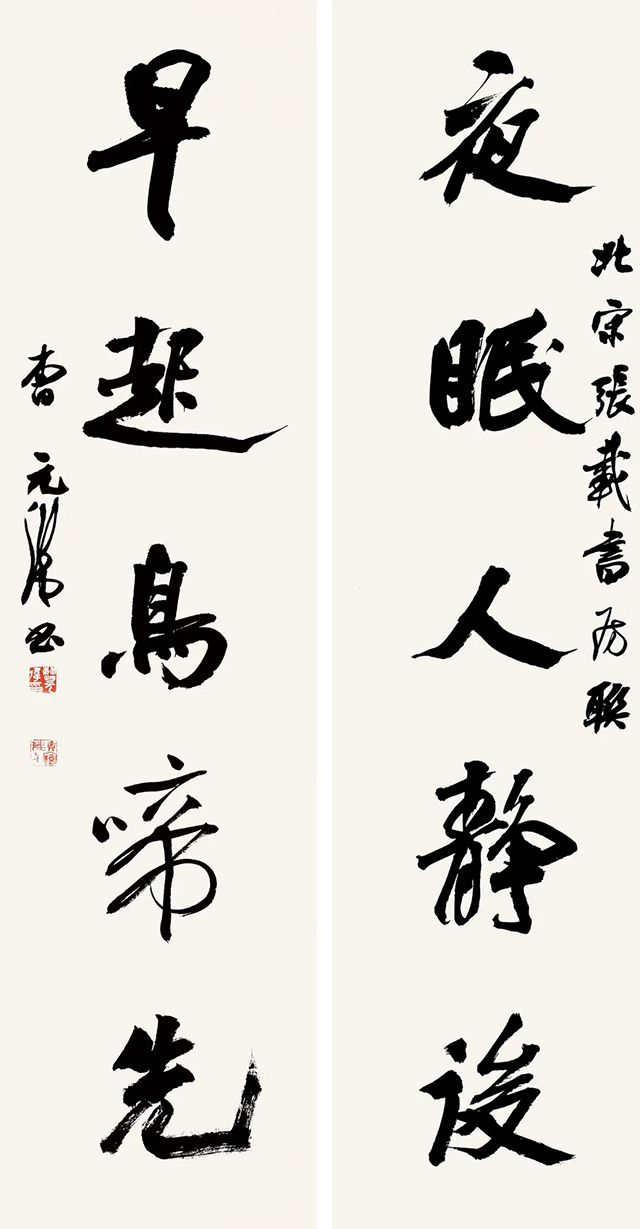 北宋張載書房联
夜眠人靜後
早起鳥啼先
曹元偉書